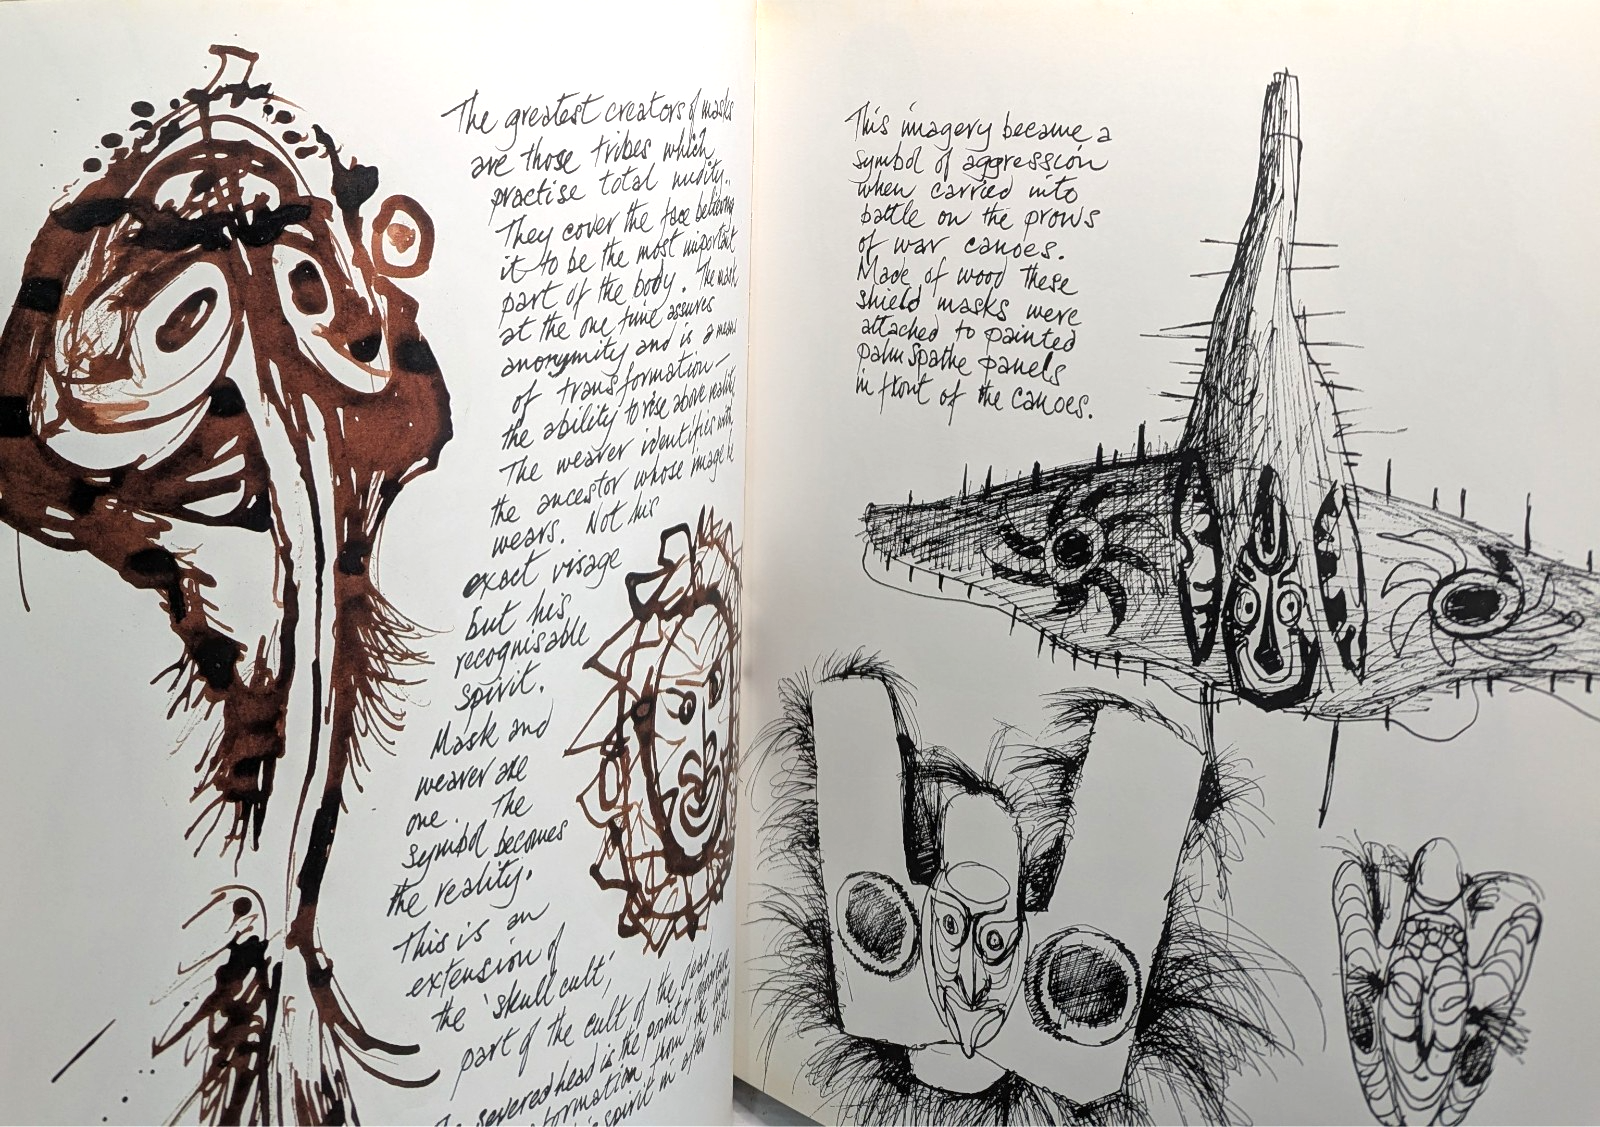 The greatest creators of masks
are those tribes which
practise total nudity..
They cover the face believing
it to be the most important
part of the body. The mask
at the one time assures
anonymity and is a means
of transformation –
the ability to rise above reality.
The wearer identifies with
the ancestor whose image he
wears. Not his
exact visage
but his
recognisable
spirit.
Mask and
wearer are
one. The
symbol becomes
the reality.
This is an
extension of
the 'skull cult',
part of the cult of the
severed head is the
from the
spirit in after
This imagery became a
symbol of aggression
when carried into
battle on the prows
of war canoes.
Made of wood these
shield masks were
attached to painted
palm spathe panels
in front of the canoes.